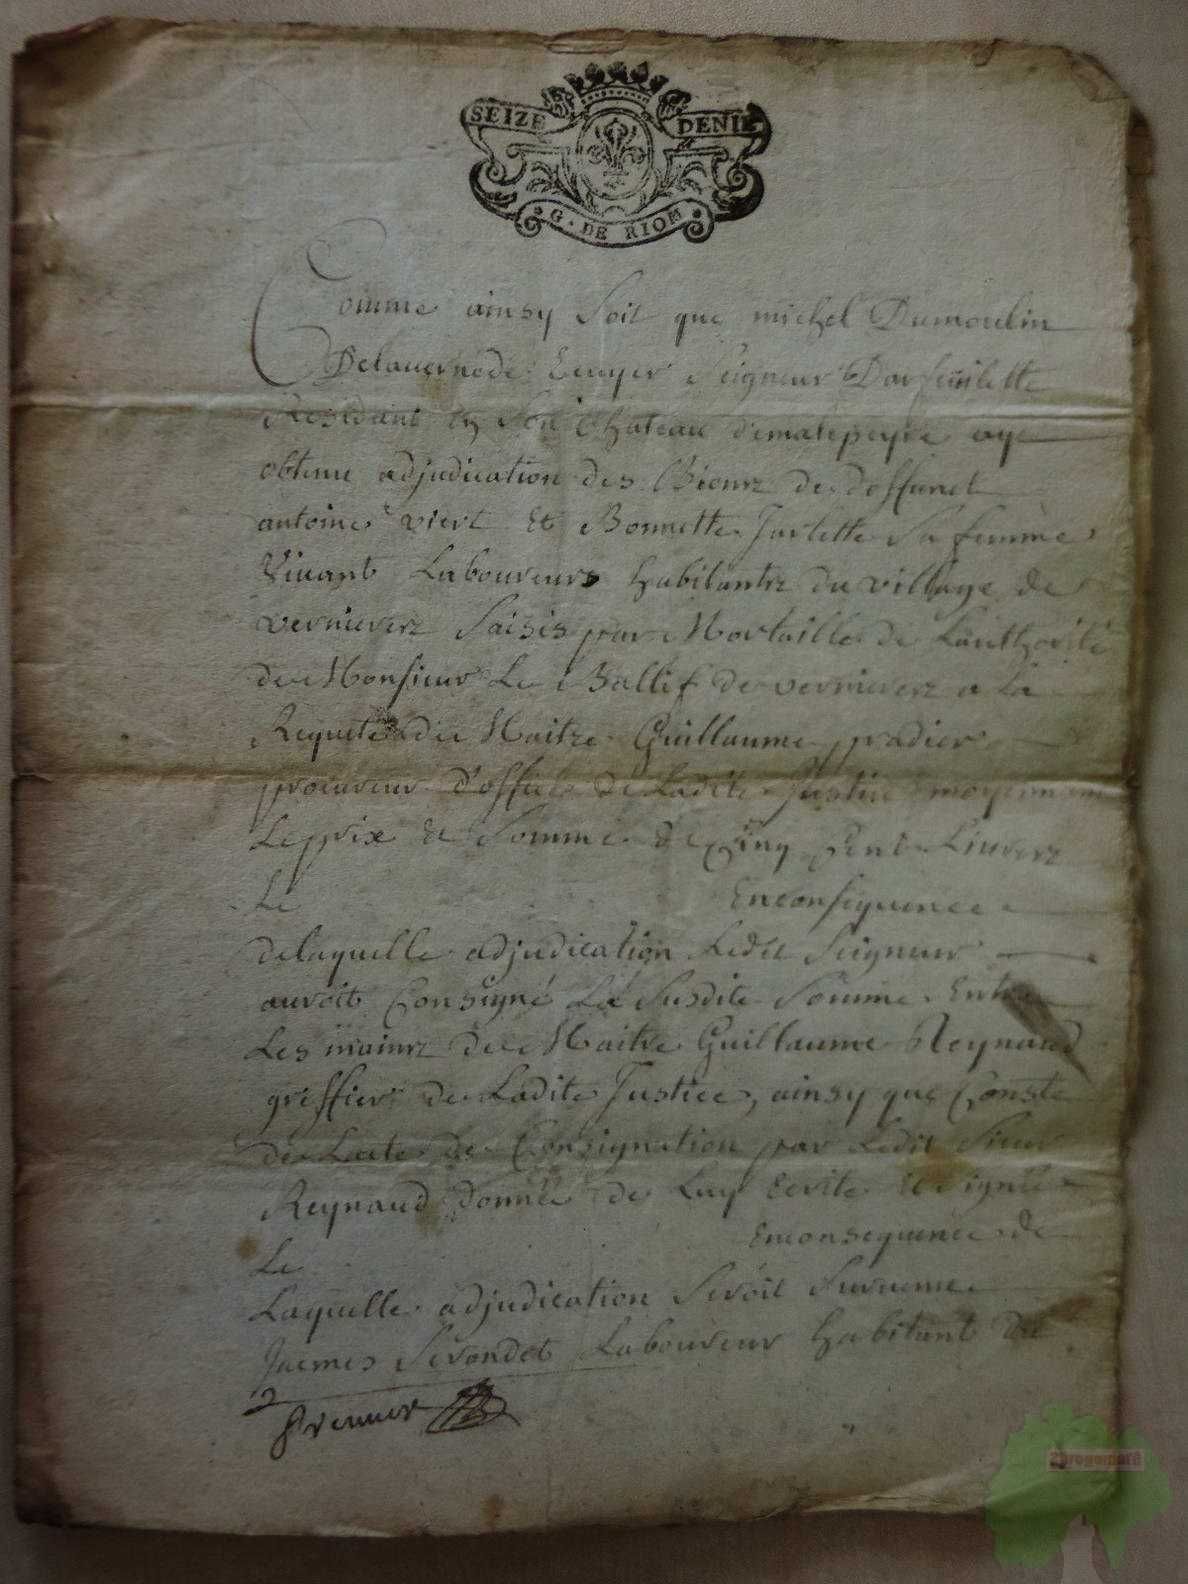 SEIZE DENIE
G. DE RIOM
Comme ainsy soit que michel Dumoulin
Delauernede Ecuyer Seigneur Darfeuilette
Residant en son Chateau demalepeyre aye
obtenu adjudication des Biens de deffunct
antoine viert Et Bonnette Jarlette Sa femme
Viuant Laboureurs habitants du village de
vernieres saisis par Mortaille de Lauthorité
de Monsieur Le Ballif de vernieres a la
Requete de Maitre Guillaume pradier
procureur d'office de Ladite Justice moyennant
Le prix et somme de Cinq Cent Liures
Le Enconsequence
delaquelle adjudication Ledit Seigneur
auroit Consigné La Susdite Somme Entre
Les mains de Maitre Guillaume Reynaud
greffier de Ladite Justice, ainsy que Conste
de Lacte de Consignation par Ledit Sieur
Reynaud donnée de Luy Ecrite et signée
Le Enconsequence de
Laquelle adjudication Seroit Suruenue
Jacmes Serondet Laboureur habitant du
2
premier